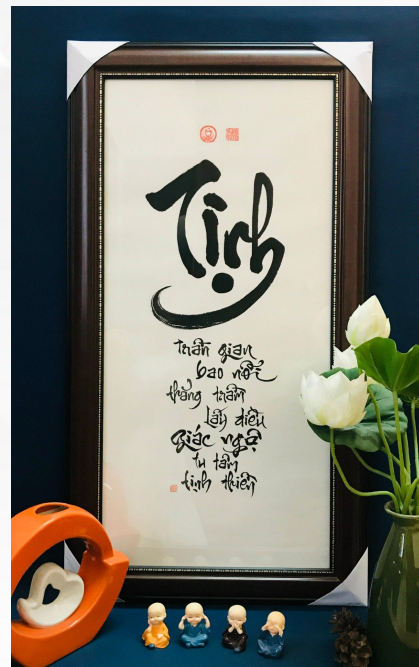 Tịnh
Trần gian
bao nỗi
thăng trầm
Lấy điều
giác ngộ
tu tâm
tịnh thiền